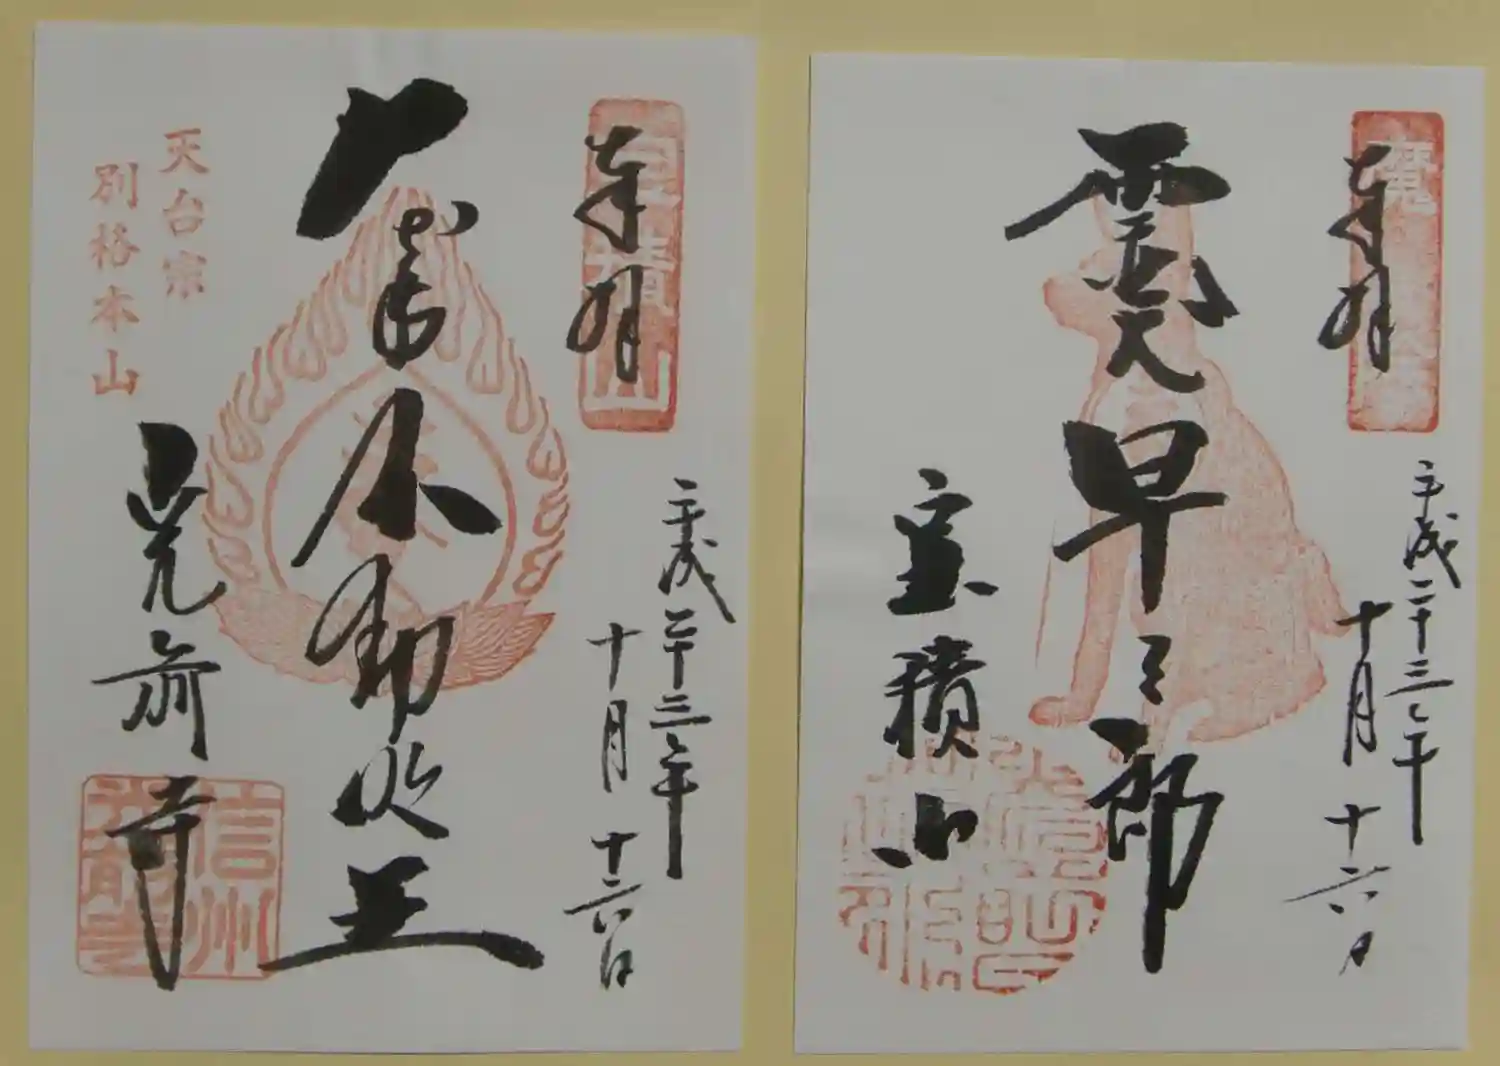 奉拝
寶積山
平成二十三年
十月 十六日
不動明王
天台宗
別格本山
光前寺
信州
光前寺
奉拝
平成二十三年
十月 十六日
霊犬早太郎
宝積山